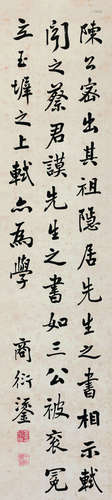 陳公密出其祖隱居先生之書相示軾
聞之蔡君謨先生之書如三公被袞冕
立玉墀之上軾亦為學
商衍鎏